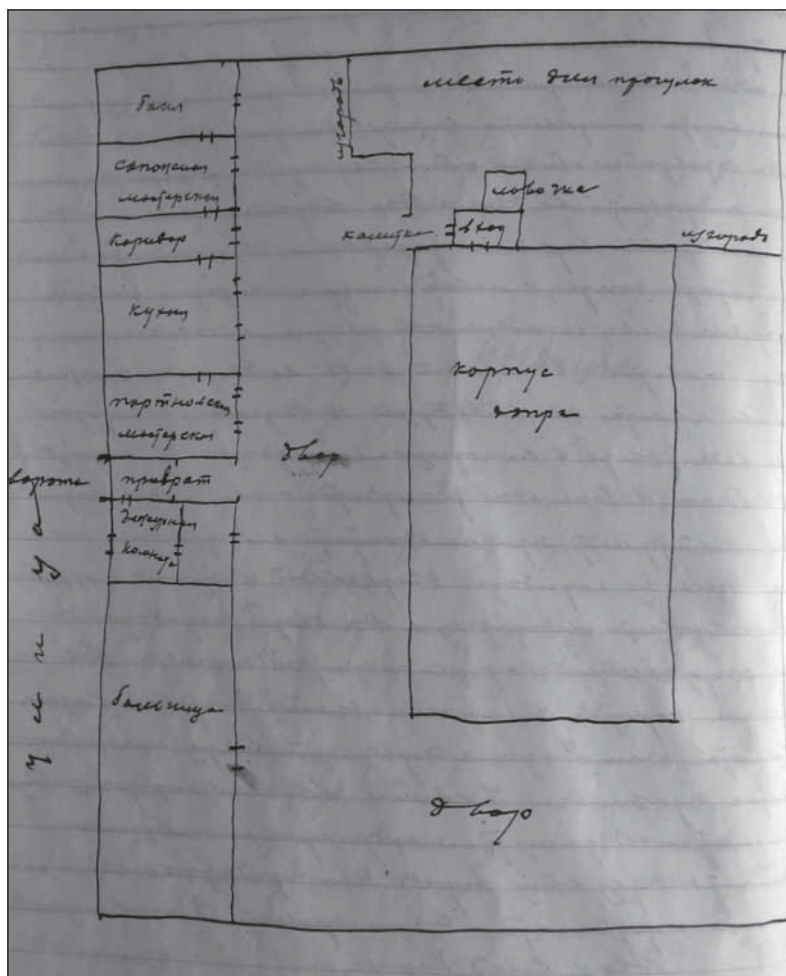 баня
место для прогулок
изгородь
сапожная
мастерская
лавочка
коридор
калитка
вход
изгородь
кухня
корпус
допра
портновская
мастерская
двор
ворота
приврат
дежурная
комната
улица
больница
двор